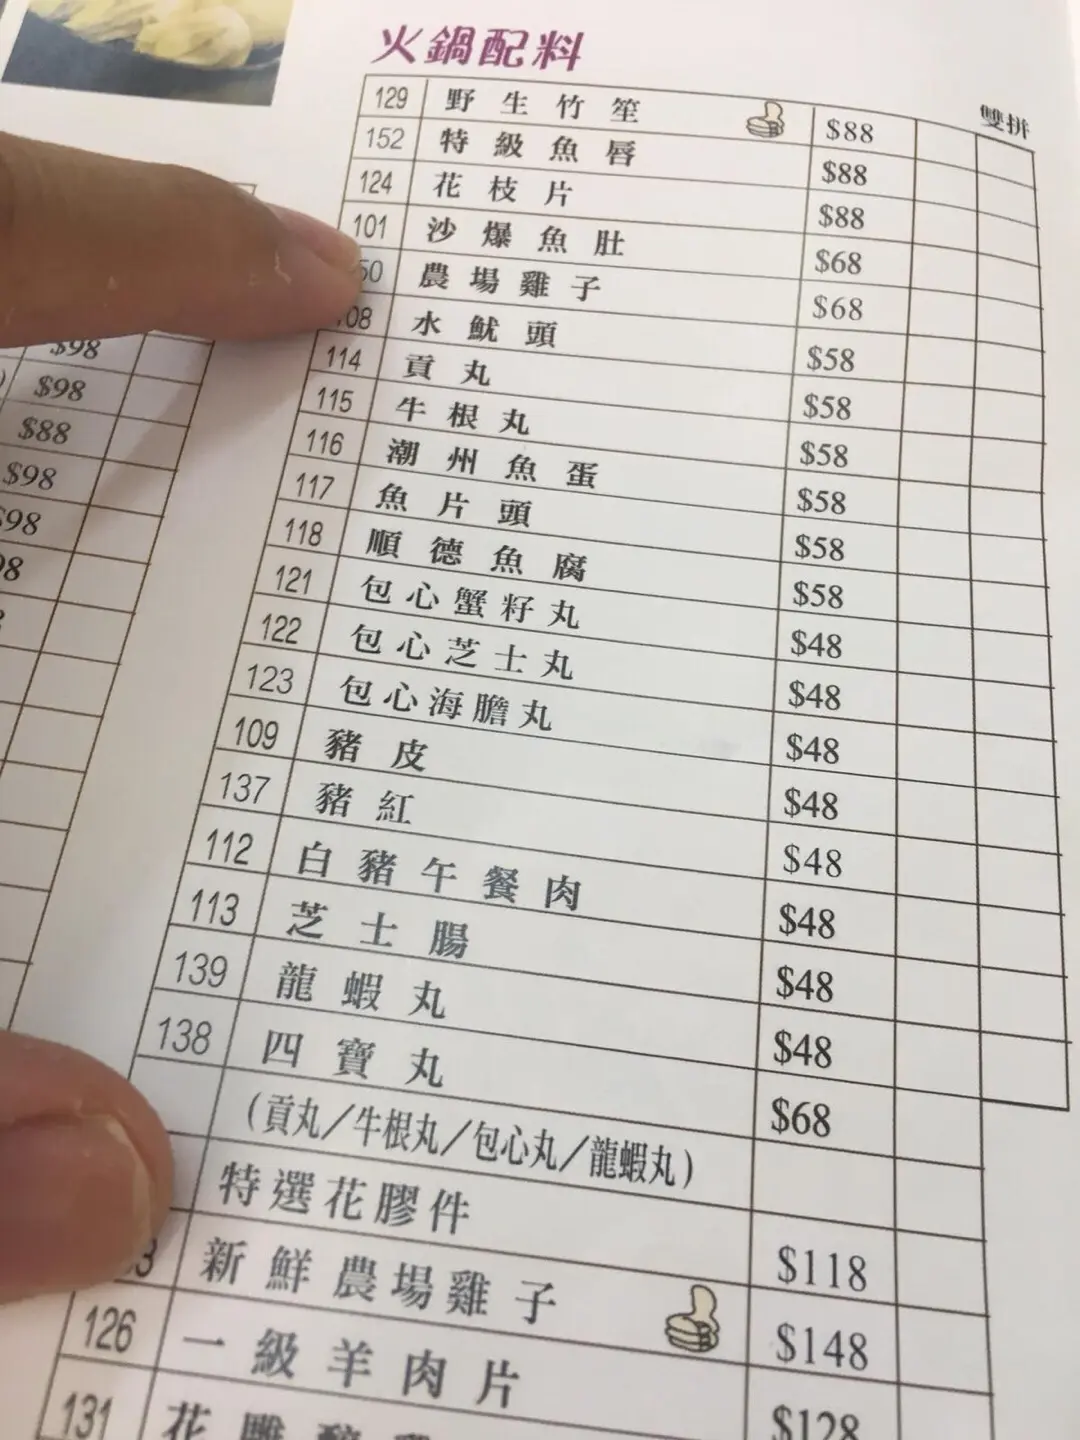 火鍋配料
雙拼
129 野生竹笙 $88
152 特級魚唇 $88
124 花枝片 $88
101 沙爆魚肚 $68
50 農場雞子 $68
108 水魷頭 $58
114 貢丸 $58
115 牛根丸 $58
116 潮州魚蛋 $58
117 魚片頭 $58
118 順德魚腐 $58
121 包心蟹籽丸 $48
122 包心芝士丸 $48
123 包心海膽丸 $48
109 豬皮 $48
137 豬紅 $48
112 白豬午餐肉 $48
113 芝士腸 $48
139 龍蝦丸 $48
138 四寶丸 $68
(貢丸/牛根丸/包心丸/龍蝦丸)
特選花膠件 $118
3 新鮮農場雞子 $148
126 一級羊肉片 $128
131 花雕醉
$98
$98
$88
$98
$98